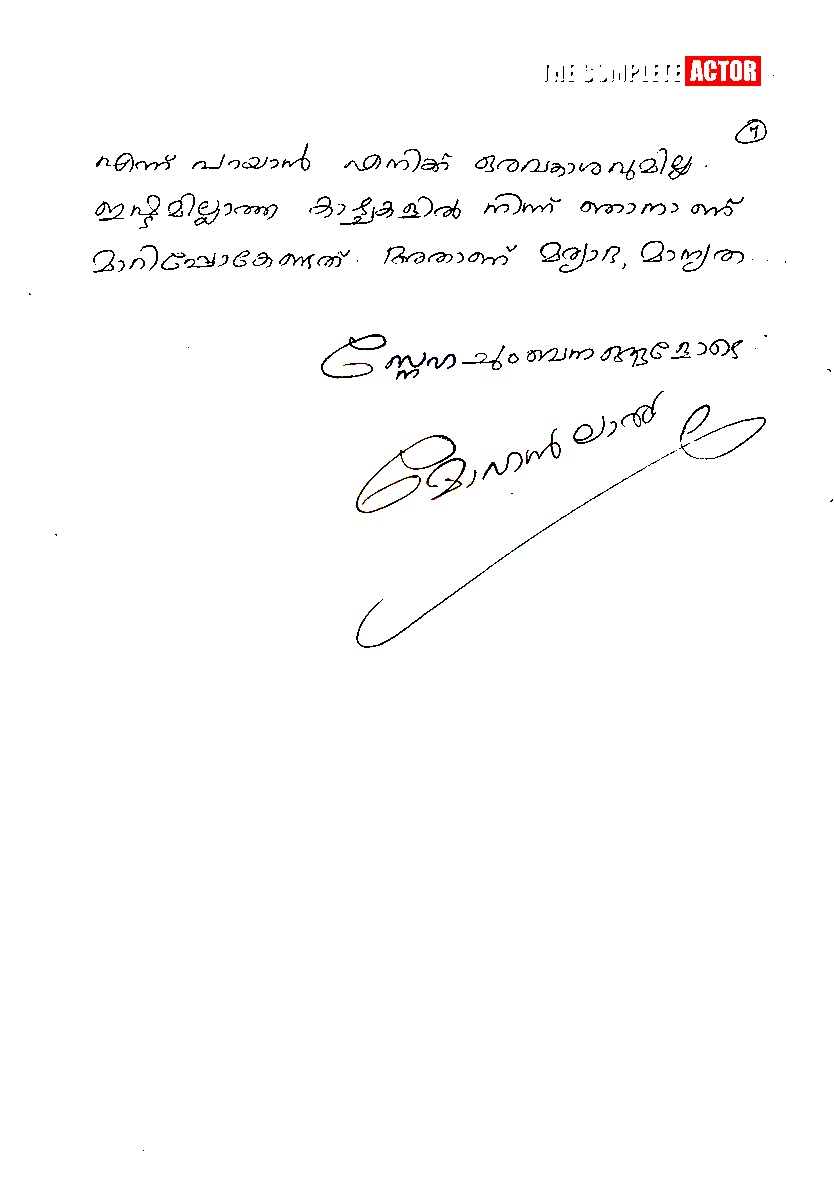 THE COMPLETE ACTOR
7
എന്ന് പറയാൻ എനിക്ക് ഒരവകാശവുമില്ല.
ഇഷ്ടമില്ലാത്ത കാഴ്ചകളിൽ നിന്ന് ഞാനാണ്
മാറിപ്പോകേണ്ടത്. അതാണ് മര്യാദ, മാന്യത...
സ്നേഹചുംബനങ്ങളോടെ
മോഹൻലാൽ